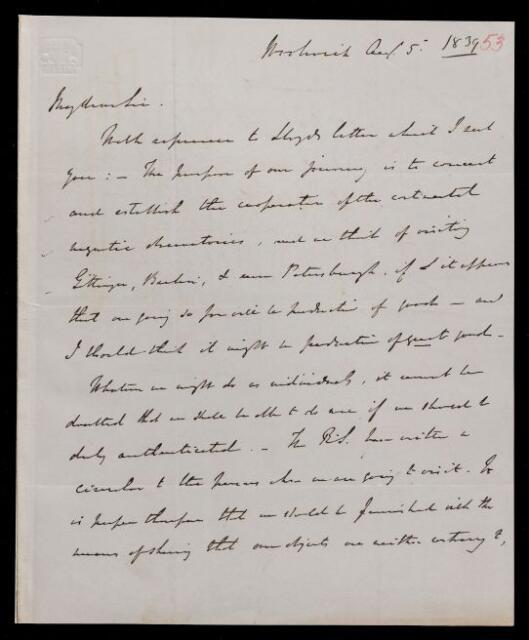 Woolwich Aug. 5. 1839 53
My dear Sir.
With reference to Lloyd's letter which I sent
you : – The purpose of our journey is to concert
and establish the cooperation of the continental
magnetic observatories, and we think of visiting
Göttingen, Berlin, & even Petersburgh, if it appears
that our going so far will be productive of good – and
I should think it might be productive of great good –
Whatever we might do as individuals, it cannot be
doubted that we shall be able to do more if we should be
duly authenticated. – The R.S. have written a
circular to the persons whom we are going to visit. It
is proper therefore that we should be furnished with the
means of shewing that our objects are neither contrary to,